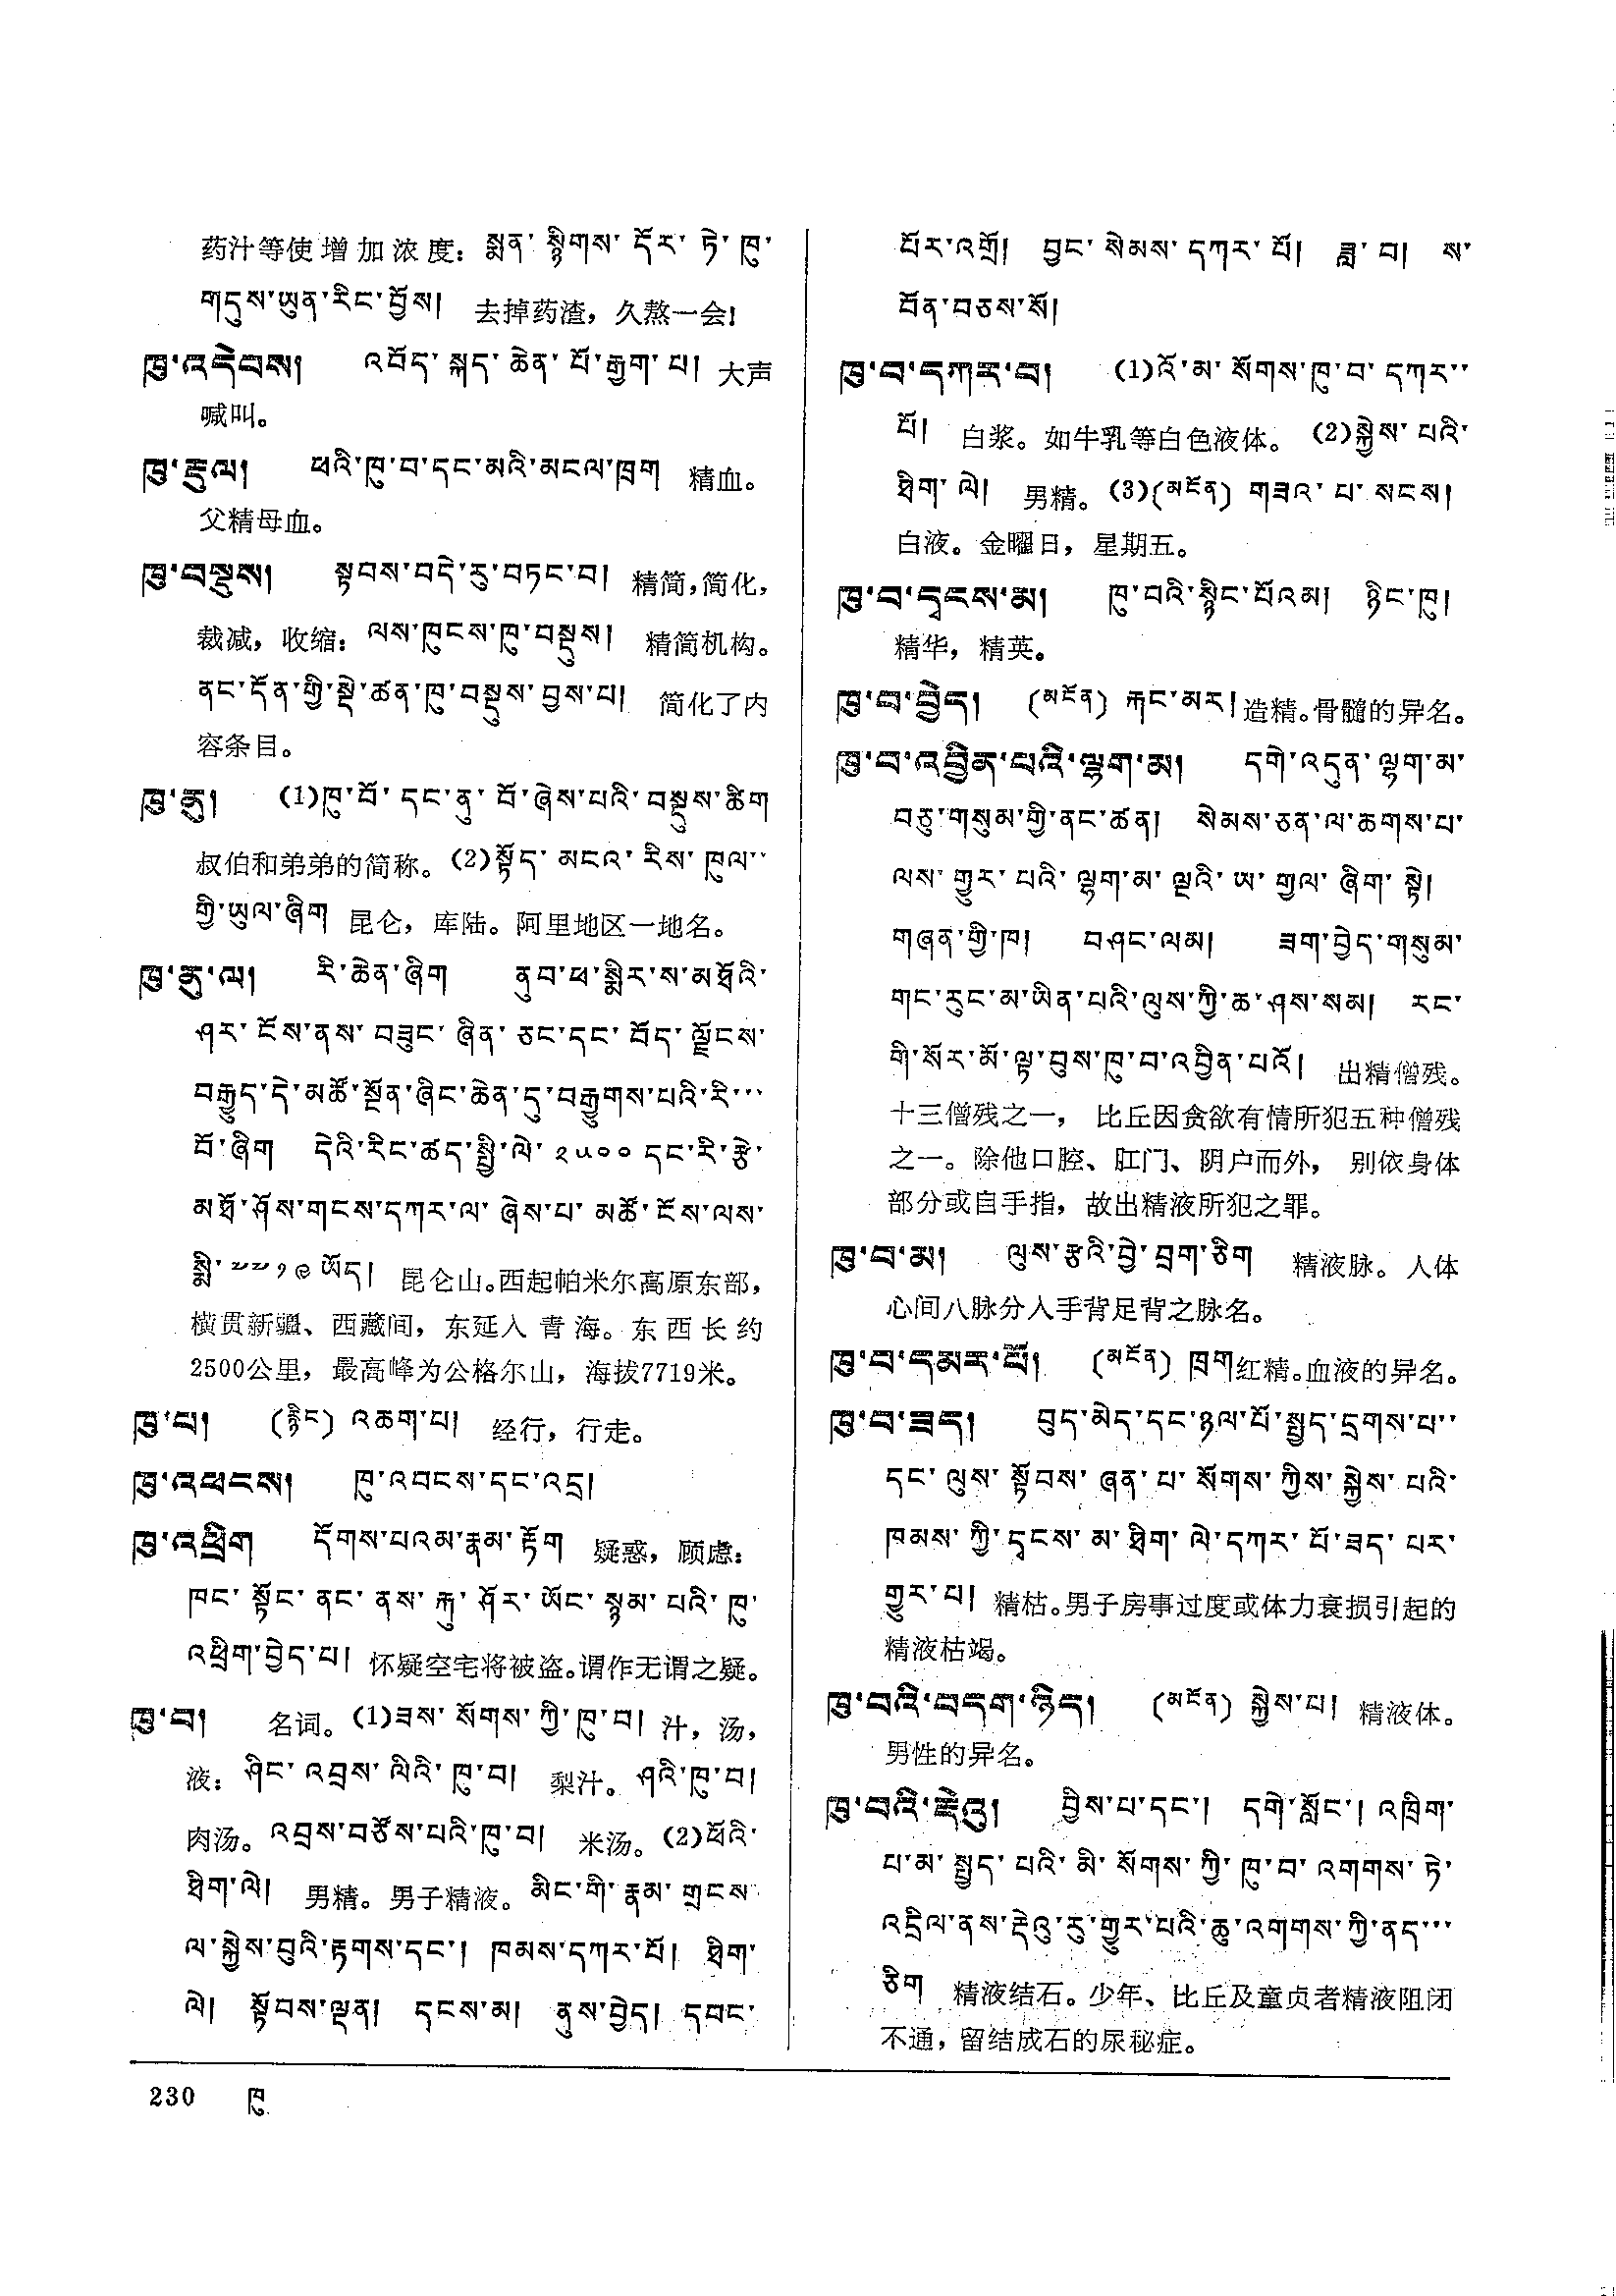 药汁等使增加浓度: སྨན་སྙིགས་དོར་ཏེ་ཁུ་
གདུས་ཡུན་རིང་བྱོས། 去掉药渣，久熬一会!
ཁུ་འདེབས། འབོད་སྐད་ཆེན་པོ་རྒྱག་པ། 大声
喊叫。
ཁུ་རྡུལ། ཕའི་ཁུ་བ་དང་མའི་མངལ་ཁྲག 精血。
父精母血。
ཁུ་བསྡུས། སྟབས་བདེ་རུ་བཏང་བ། 精简,简化,
裁减，收缩: ལས་ཁུངས་ཁུ་བསྡུས། 精简机构。
ནང་དོན་གྱི་སྡེ་ཚན་ཁུ་བསྡུས་བྱས་པ། 简化了内
容条目。
ཁུ་ནུ། (1)ཁུ་བོ་དང་ནུ་བོ་ཞེས་པའི་བསྡུས་ཚིག
叔伯和弟弟的简称。(2)སྟོད་མངའ་རིས་ཁུལ་་
གྱི་ཡུལ་ཞིག 昆仑，库陆。阿里地区一地名。
ཁུ་ནུ་ལ། རི་ཆེན་ཞིག ནུབ་ཕ་སྨིར་ས་མཐོའི་
ཤར་ངོས་ནས་བཟུང་ཞིན་ཅང་དང་བོད་ལྗོངས་
བརྒྱུད་དེ་མཚོ་སྔོན་ཞིང་ཆེན་དུ་བརྒྱུགས་པའི་རི་་་
བོ་ཞིག དེའི་རིང་ཚད་སྤྱི་ལེ་༢༥༠༠དང་རི་རྩེ་
མཐོ་ཤོས་གངས་དཀར་ལ་ཞེས་པ་མཚོ་ངོས་ལས་
སྨི་༧༧༡༩ཡོད། 昆仑山。西起帕米尔高原东部，
横贯新疆、西藏间，东延入青海。东西长约
2500公里，最高峰为公格尔山，海拔7719米。
ཁུ་པ། (རྙིང) འཆག་པ། 经行，行走。
ཁུ་འཕངས། ཁུ་འབངས་དང་འདྲ།
ཁུ་འཕྲིག དོགས་པའམ་རྣམ་རྟོག 疑惑，顾虑:
ཁང་སྟོང་ནང་ནས་རྐུ་ཤོར་ཡོང་སྙམ་པའི་ཁུ་
འཕྲིག་བྱེད་པ། 怀疑空宅将被盗。谓作无谓之疑。
ཁུ་བ། 名词。(1)ཟས་སོགས་ཀྱི་ཁུ་བ། 汁，汤，
液: ཤིང་འབྲས་ལིའི་ཁུ་བ། 梨汁。ཤའི་ཁུ་བ།
肉汤。འབྲས་བཙོས་པའི་ཁུ་བ། 米汤。(2)ཕོའི་
ཐིག་ལེ། 男精。男子精液。མིང་གི་རྣམ་གྲངས་
ལ་སྐྱེས་བུའི་རྟགས་དང་། ཁམས་དཀར་པོ། ཐིག་
ལེ། སྟོབས་ལྡན། དྭངས་མ། ནུས་བྱེད། དབང་
པོར་འགྲོ། བྱང་སེམས་དཀར་པོ། ཟླ་བ། ས་
བོན་བཅས་སོ།
ཁུ་བ་དཀར་བ། (1)འོ་མ་སོགས་ཁུ་བ་དཀར་་
པོ། 白浆。如牛乳等白色液体。(2)སྐྱེས་པའི་
ཐིག་ལེ། 男精。(3)(མངོན) གཟའ་པ་སངས།
白液。金曜日，星期五。
ཁུ་བ་དྭངས་མ། ཁུ་བའི་སྙིང་པོའམ། ཉིང་ཁུ།
精华，精英。
ཁུ་བ་བྱེད། (མངོན) རྐང་མར། 造精。骨髓的异名。
ཁུ་བ་འབྱིན་པའི་ལྷག་མ། དགེ་འདུན་ལྷག་མ་
བཅུ་གསུམ་གྱི་ནང་ཚན། སེམས་ཅན་ལ་ཆགས་པ་
ལས་གྱུར་པའི་ལྷག་མ་ལྔའི་ཡ་གྱལ་ཞིག་སྟེ།
གཞན་གྱི་ཁ། བཤང་ལམ། ཟག་བྱེད་གསུམ་
གང་རུང་མ་ཡིན་པའི་ལུས་ཀྱི་ཆ་ཤས་སམ། རང་
གི་སོར་མོ་ལྟ་བུས་ཁུ་བ་འབྱིན་པའོ། 出精僧残。
十三僧残之一， 比丘因贪欲有情所犯五种僧残
之一。除他口腔、肛门、阴户而外， 别依身体
部分或自手指，故出精液所犯之罪。
ཁུ་བ་མ། ལུས་རྩའི་བྱེ་བྲག་ཅིག 精液脉。人体
心间八脉分入手背足背之脉名。
ཁུ་བ་དམར་པོ། (མངོན) ཁྲག 红精。血液的异名。
ཁུ་བ་ཟད། བུད་མེད་དང་ཉལ་པོ་སྤྱད་དྲགས་པ་་
དང་ལུས་སྟོབས་ཞན་པ་སོགས་ཀྱིས་སྐྱེས་པའི་
ཁམས་ཀྱི་དྭངས་མ་ཐིག་ལེ་དཀར་པོ་ཟད་པར་
གྱུར་པ། 精枯。男子房事过度或体力衰损引起的
精液枯竭。
ཁུ་བའི་བདག་ཉིད། (མངོན) སྐྱེས་པ། 精液体。
男性的异名。
ཁུ་བའི་རྡེའུ། བྱིས་པ་དང་། དགེ་སློང་། འཁྲིག་
པ་མ་སྤྱད་པའི་མི་སོགས་ཀྱི་ཁུ་བ་འགགས་ཏེ་
འདྲིལ་ནས་རྡེའུ་རུ་གྱུར་པའི་ཆུ་འགགས་ཀྱི་ནད་་་
ཅིག 精液结石。少年、比丘及童贞者精液阻闭
不通，留结成石的尿秘症。
230 ཁུ